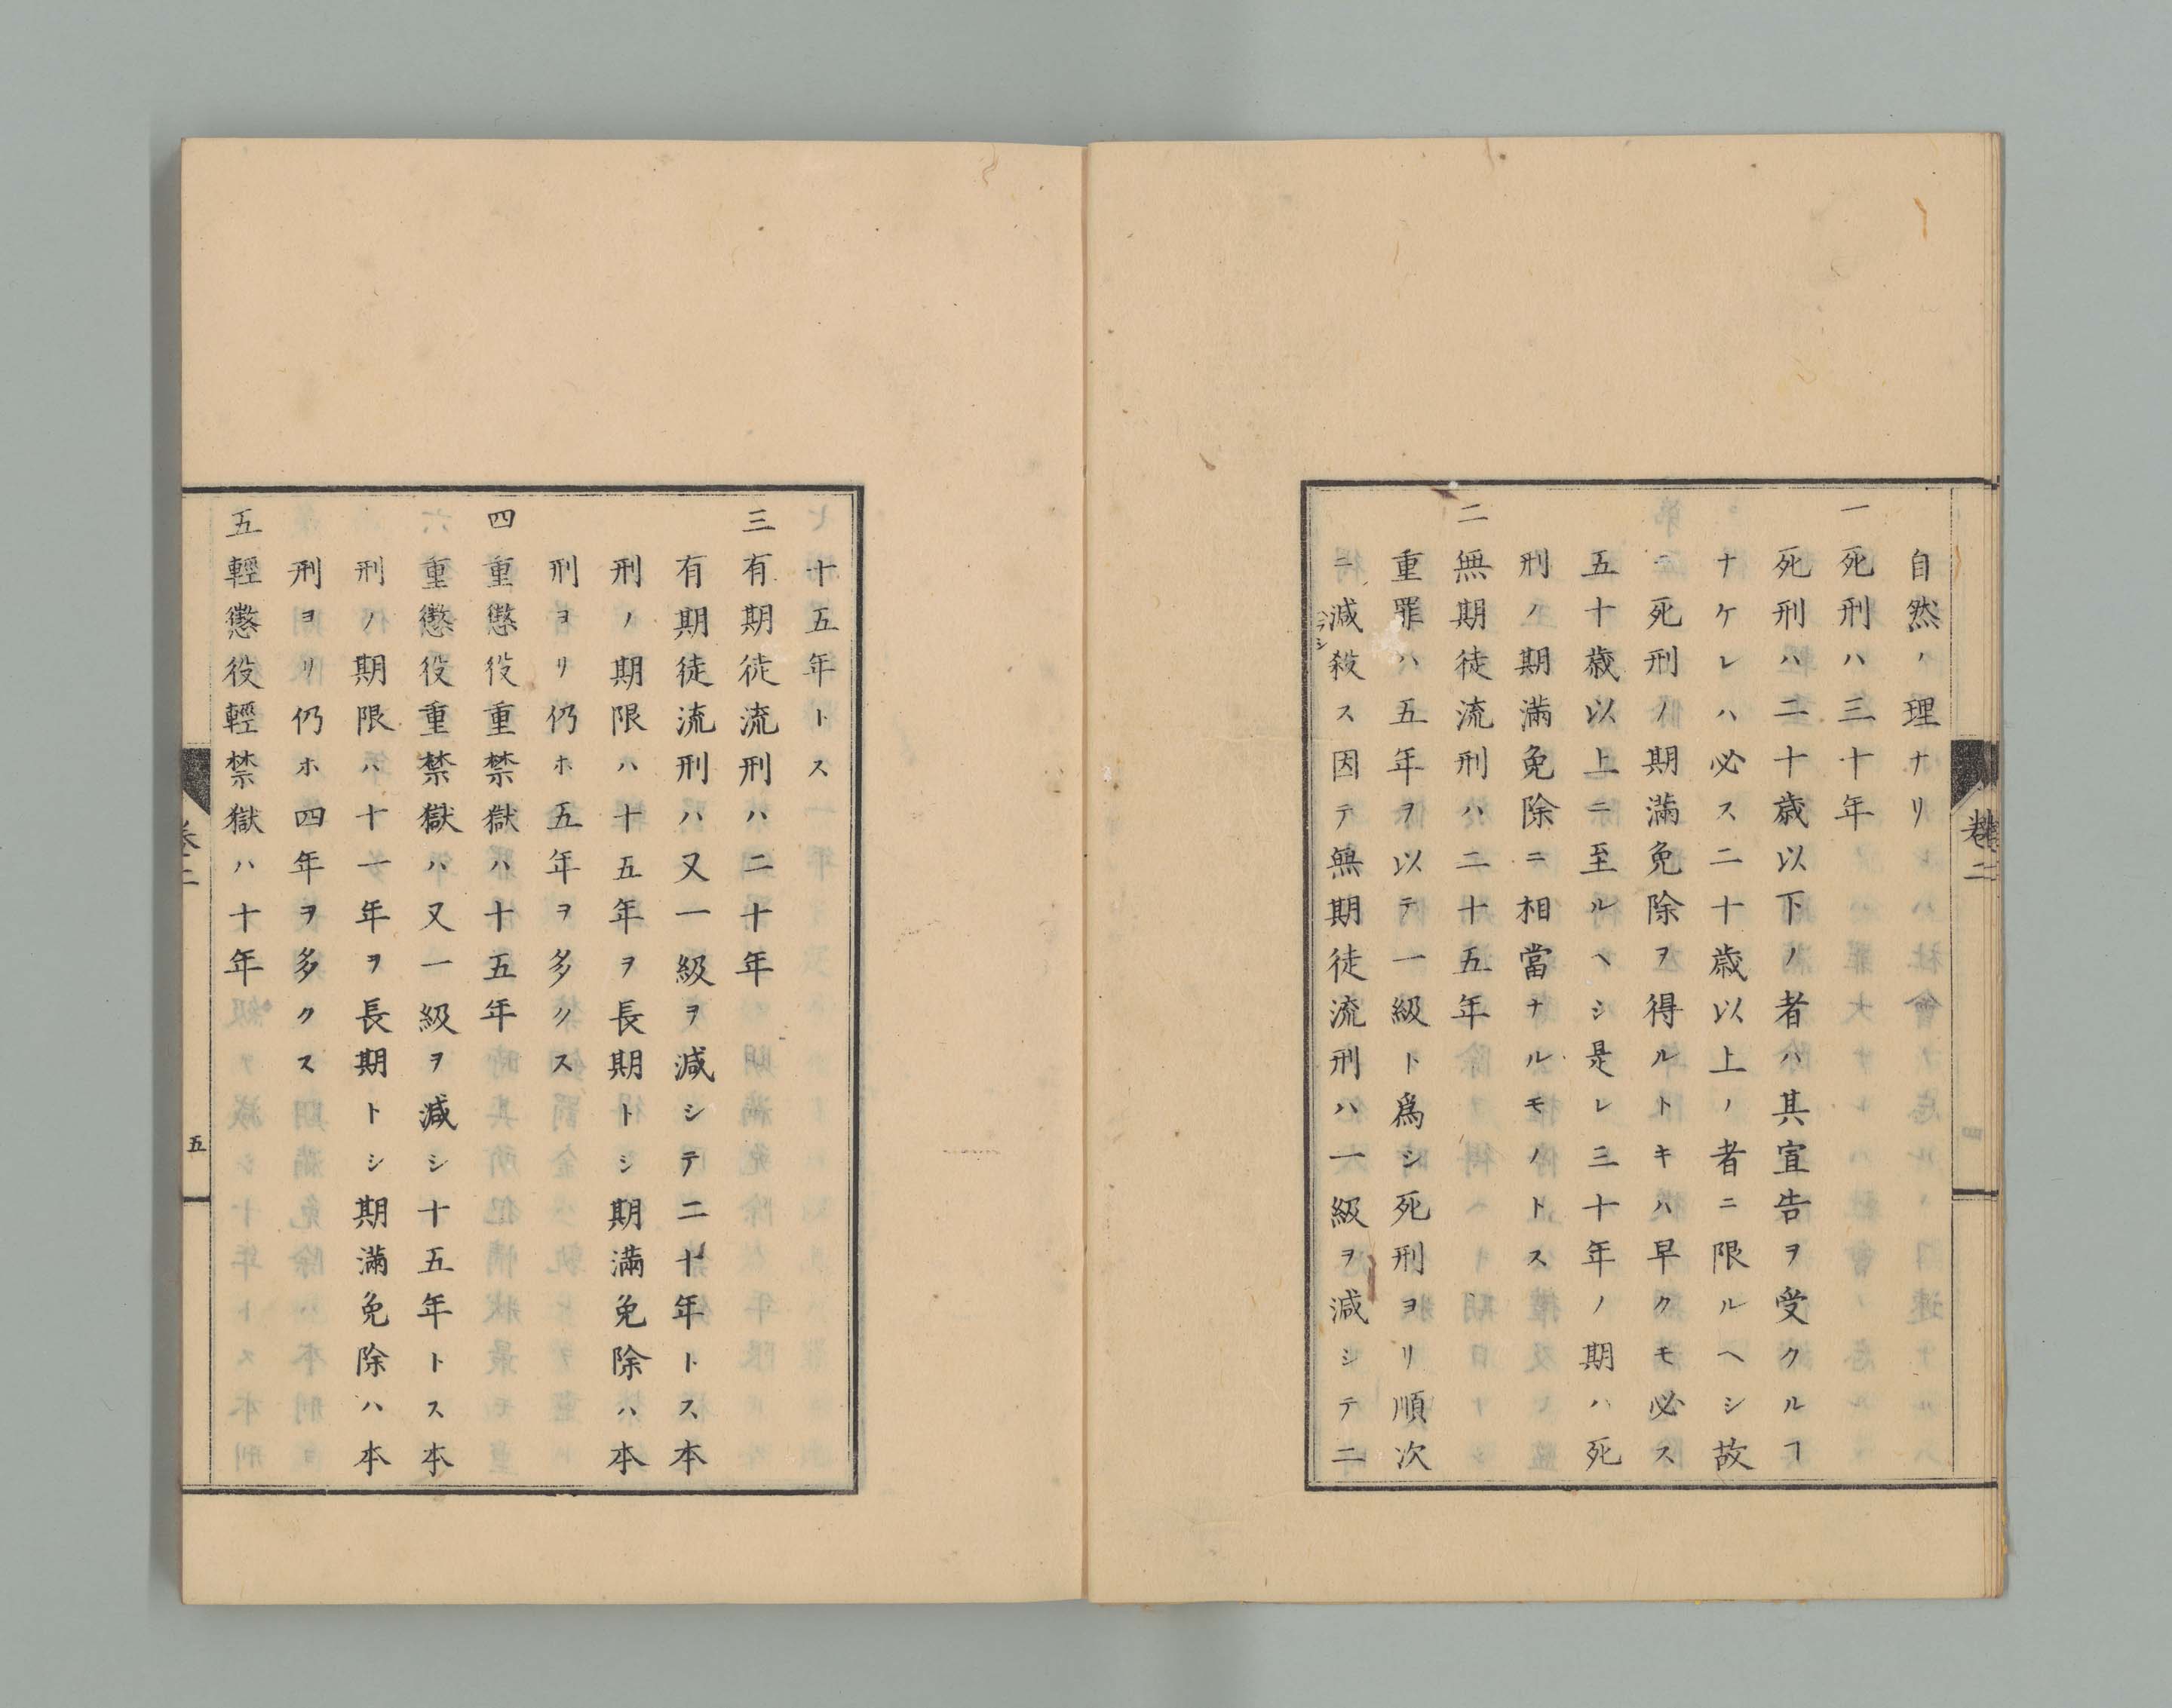 自然ノ理ナリ
一死刑ハ三十年
死刑ハ二十歳以下ノ者ハ其宣告ヲ受クルヿ
ナケレハ必ス二十歳以上ノ者ニ限ルヘシ故
ニ死刑ノ期滿免除ヲ得ルトキハ早クモ必ス
五十歳以上ニ至ルヘシ是レ三十年ノ期ハ死
刑ノ期滿免除ニ相當ナルモノトス
二無期徒流刑ハ二十五年
重罪ハ五年ヲ以テ一級ト爲シ死刑ヲリ順次
ニ減殺ス因テ無期徒流刑ハ一級ヲ減シテ二
卷二
十五年トス
三有期徒流刑ハ二十年
有期徒流刑ハ又一級ヲ減シテ二十年トス本
刑ノ期限ハ十五年ヲ長期トシ期滿免除ハ本
刑ヲリ仍ホ五年ヲ多クス
四重懲役重禁獄ハ十五年
重懲役重禁獄ハ又一級ヲ減シ十五年トス本
刑ノ期限ハ十一年ヲ長期トシ期滿免除ハ本
刑ヲリ仍ホ四年ヲ多クス
五輕懲役輕禁獄ハ十年
卷二
五